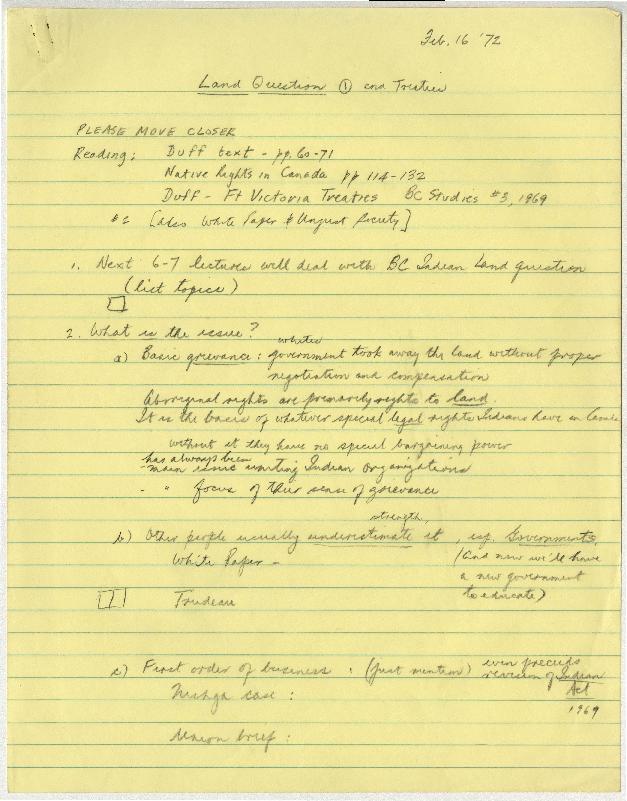 Feb. 16 '72
Land Question ① and Treaties
PLEASE MOVE CLOSER
Reading: Duff text - pp. 60-71
Native Rights in Canada pp 114-132
Duff - Ft Victoria Treaties BC Studies #3, 1969
[Also White Paper & Unjust Society]
1. Next 6-7 lectures will deal with BC Indian Land question
(list topics)
2. What is the issue?
whites
a) Basic grievance: government took away the land without proper
negotiation and compensation
Aboriginal rights are primarily rights to land.
It is the basis of whatever special legal rights Indians have in Canada
without it they have no special bargaining power
has always been
- main issue uniting Indian organizations
- " focus of their sense of grievance
strength,
b) Other people usually underestimate it, esp. Governments,
White Paper - (and now we'll have
a new government
Trudeau to educate)
c) First order of business: (just mention) even precede
revision of Indian
Nishga case: Act
1969
Union brief: